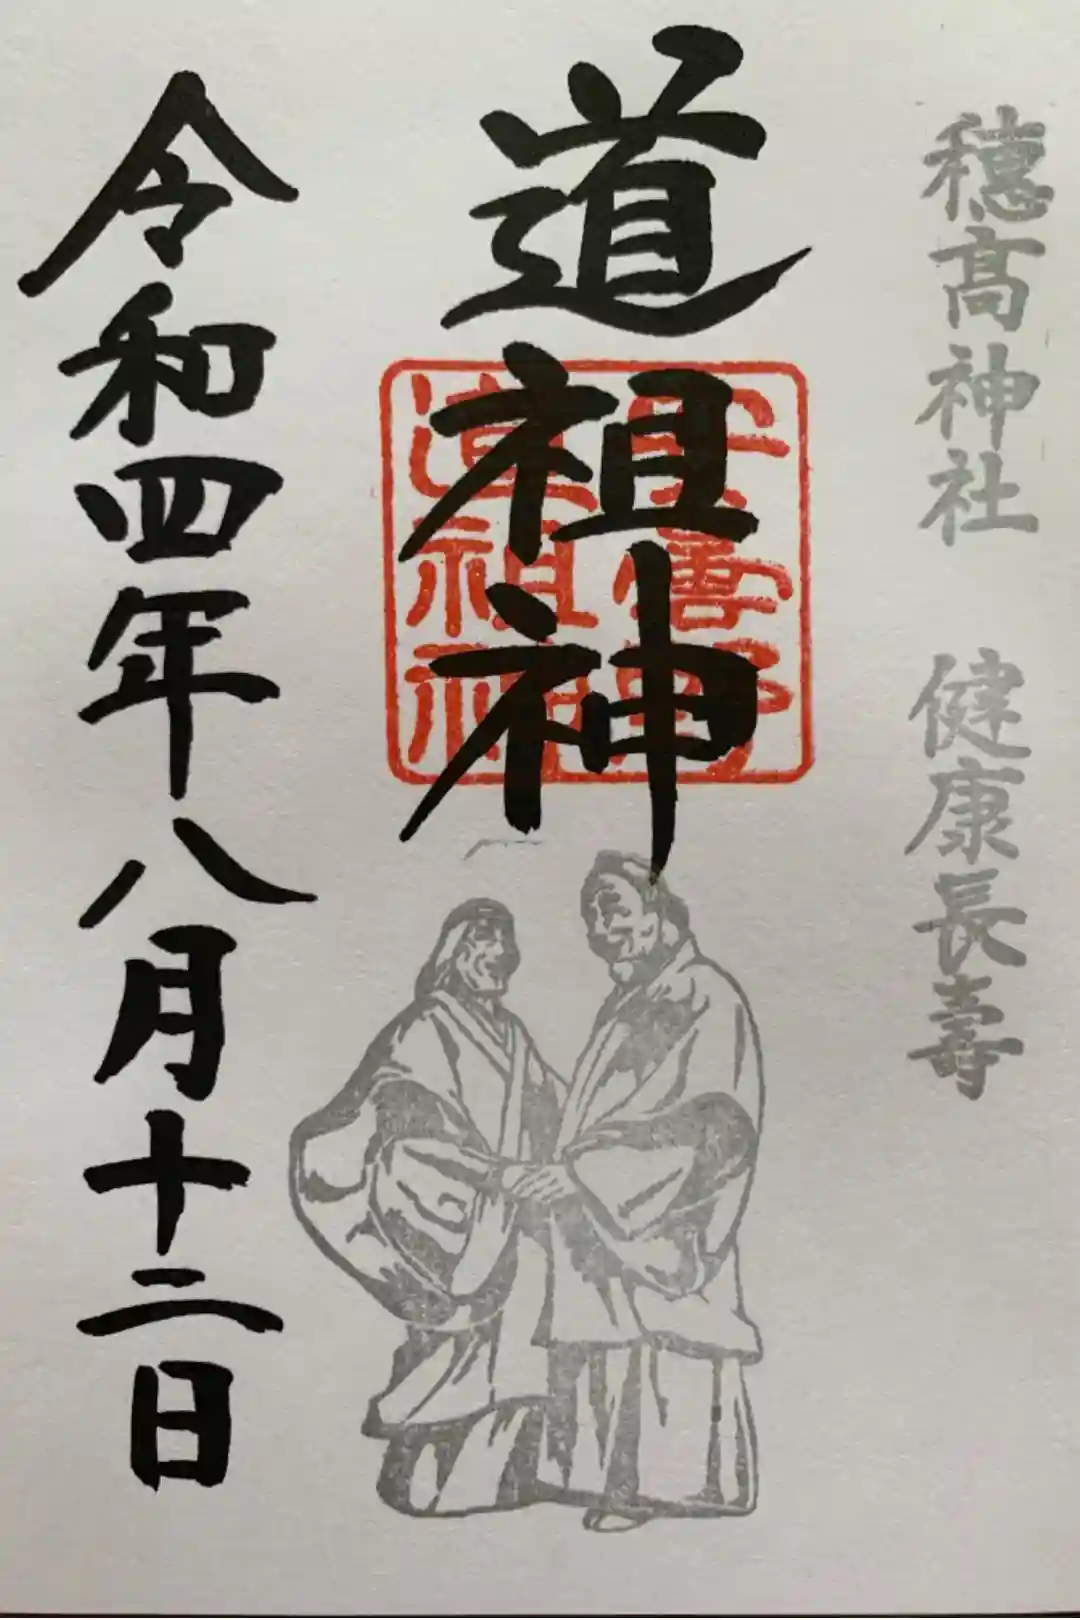 穂高神社 健康長壽
道祖神
安曇野
道祖神
令和四年八月十二日